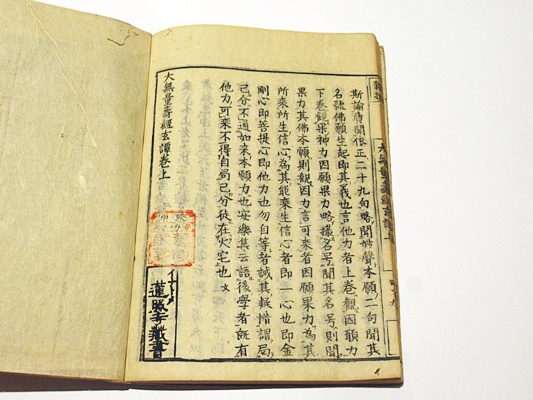 斯論廣開依正二十九句略聞妙聲本願二句聞其
名號佛願生起即其義也言他力者上卷觀因願力
下卷觀果神力因願果力略攝名号聞其名号則聞
果力其佛本願則觀因力言可乘者因願果力為其
所乘所生信心為其能乘生信心者即一心也即金
剛心即菩提心即他力也勿自等者誡其疑情謂局
己分不通如來本他力也安樂集云語後學者既有
他力可乘不得自局己分徒在火宅也
大無量壽經玄譚卷上
蓮照寺藏書